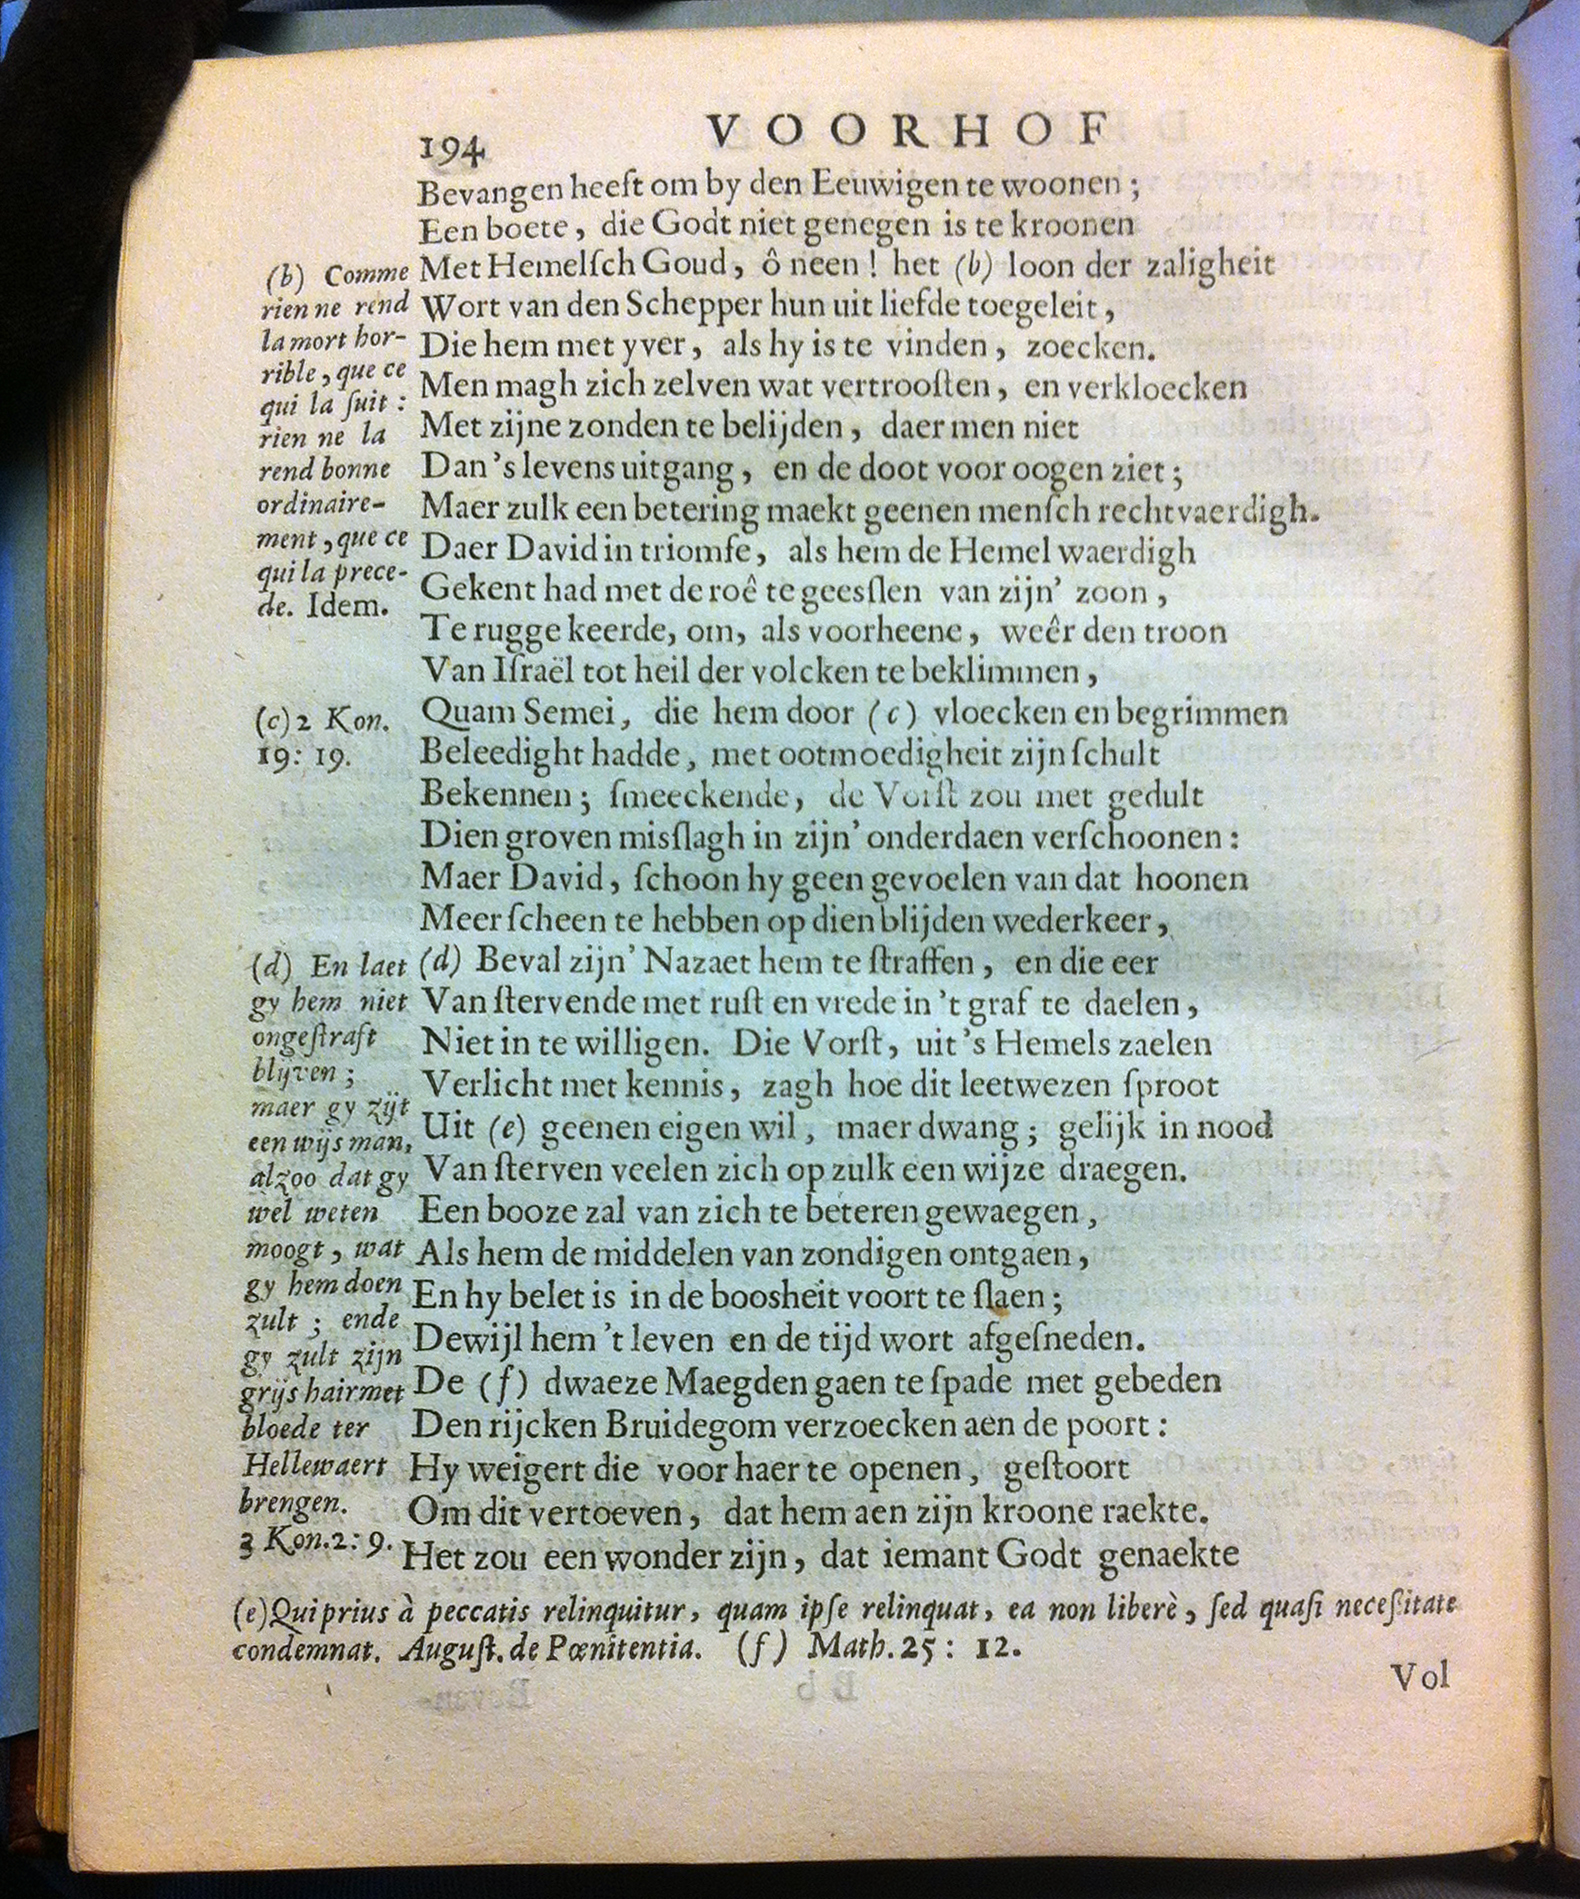 194 VOORHOF
Bevangen heeft om by den Eeuwigen te woonen ;
Een boete, die Godt niet genegen is te kroonen
Met Hemelſch Goud, ô neen ! het (b) loon der zaligheit
Wort van den Schepper hun uit liefde toegeleit,
Die hem met yver, als hy is te vinden, zoecken.
Men magh zich zelven wat vertrooſten, en verkloecken
Met zijne zonden te belijden, daer men niet
Dan 's levens uitgang, en de doot voor oogen ziet ;
Maer zulk een betering maekt geenen menſch rechtvaerdigh.
Daer David in triomfe, als hem de Hemel waerdigh
Gekent had met de roê te geesſlen van zijn' zoon,
Te rugge keerde, om, als voorheene, weêr den troon
Van Iſraël tot heil der volcken te beklimmen,
Quam Semei, die hem door (c) vloecken en begrimmen
Beleedight hadde, met ootmoedigheit zijn ſchult
Bekennen ; ſmeeckende, de Vorſt zou met gedult
Dien groven misſlagh in zijn' onderdaen verſchoonen :
Maer David, ſchoon hy geen gevoelen van dat hoonen
Meer ſcheen te hebben op dien blijden wederkeer,
(d) Beval zijn' Nazaet hem te ſtraffen, en die eer
Van ſtervende met ruſt en vrede in 't graf te daelen,
Niet in te willigen. Die Vorſt, uit 's Hemels zaelen
Verlicht met kennis, zagh hoe dit leetwezen ſproot
Uit (e) geenen eigen wil, maer dwang ; gelijk in nood
Van ſterven veelen zich op zulk een wijze draegen.
Een booze zal van zich te beteren gewaegen,
Als hem de middelen van zondigen ontgaen,
En hy belet is in de boosheit voort te ſlaen ;
Dewijl hem 't leven en de tijd wort afgeſneden.
De (f) dwaeze Maegden gaen te ſpade met gebeden
Den rijcken Bruidegom verzoecken aen de poort :
Hy weigert die voor haer te openen, geſtoort
Om dit vertoeven, dat hem aen zijn kroone raekte.
Het zou een wonder zijn, dat iemant Godt genaekte
(b) Comme
rien ne rend
la mort hor-
rible, que ce
qui la ſuit :
rien ne la
rend bonne
ordinaire-
ment, que ce
qui la prece-
de. Idem.
(c) 2 Kon.
19: 19.
(d) En laet
gy hem niet
ongeſtraft
blijven ;
maer gy zijt
een wijs man,
alzoo dat gy
wel weten
moogt, wat
gy hem doen
zult ; ende
gy zult zijn
grijs hair met
bloede ter
Hellewaert
brengen.
3 Kon. 2: 9.
(e) Qui prius à peccatis relinquitur, quam ipſe relinquat, ea non liberè, ſed quaſi neceſſitate
condemnat. Auguſt. de Pœnitentia. (f) Math. 25 : 12.
Vol